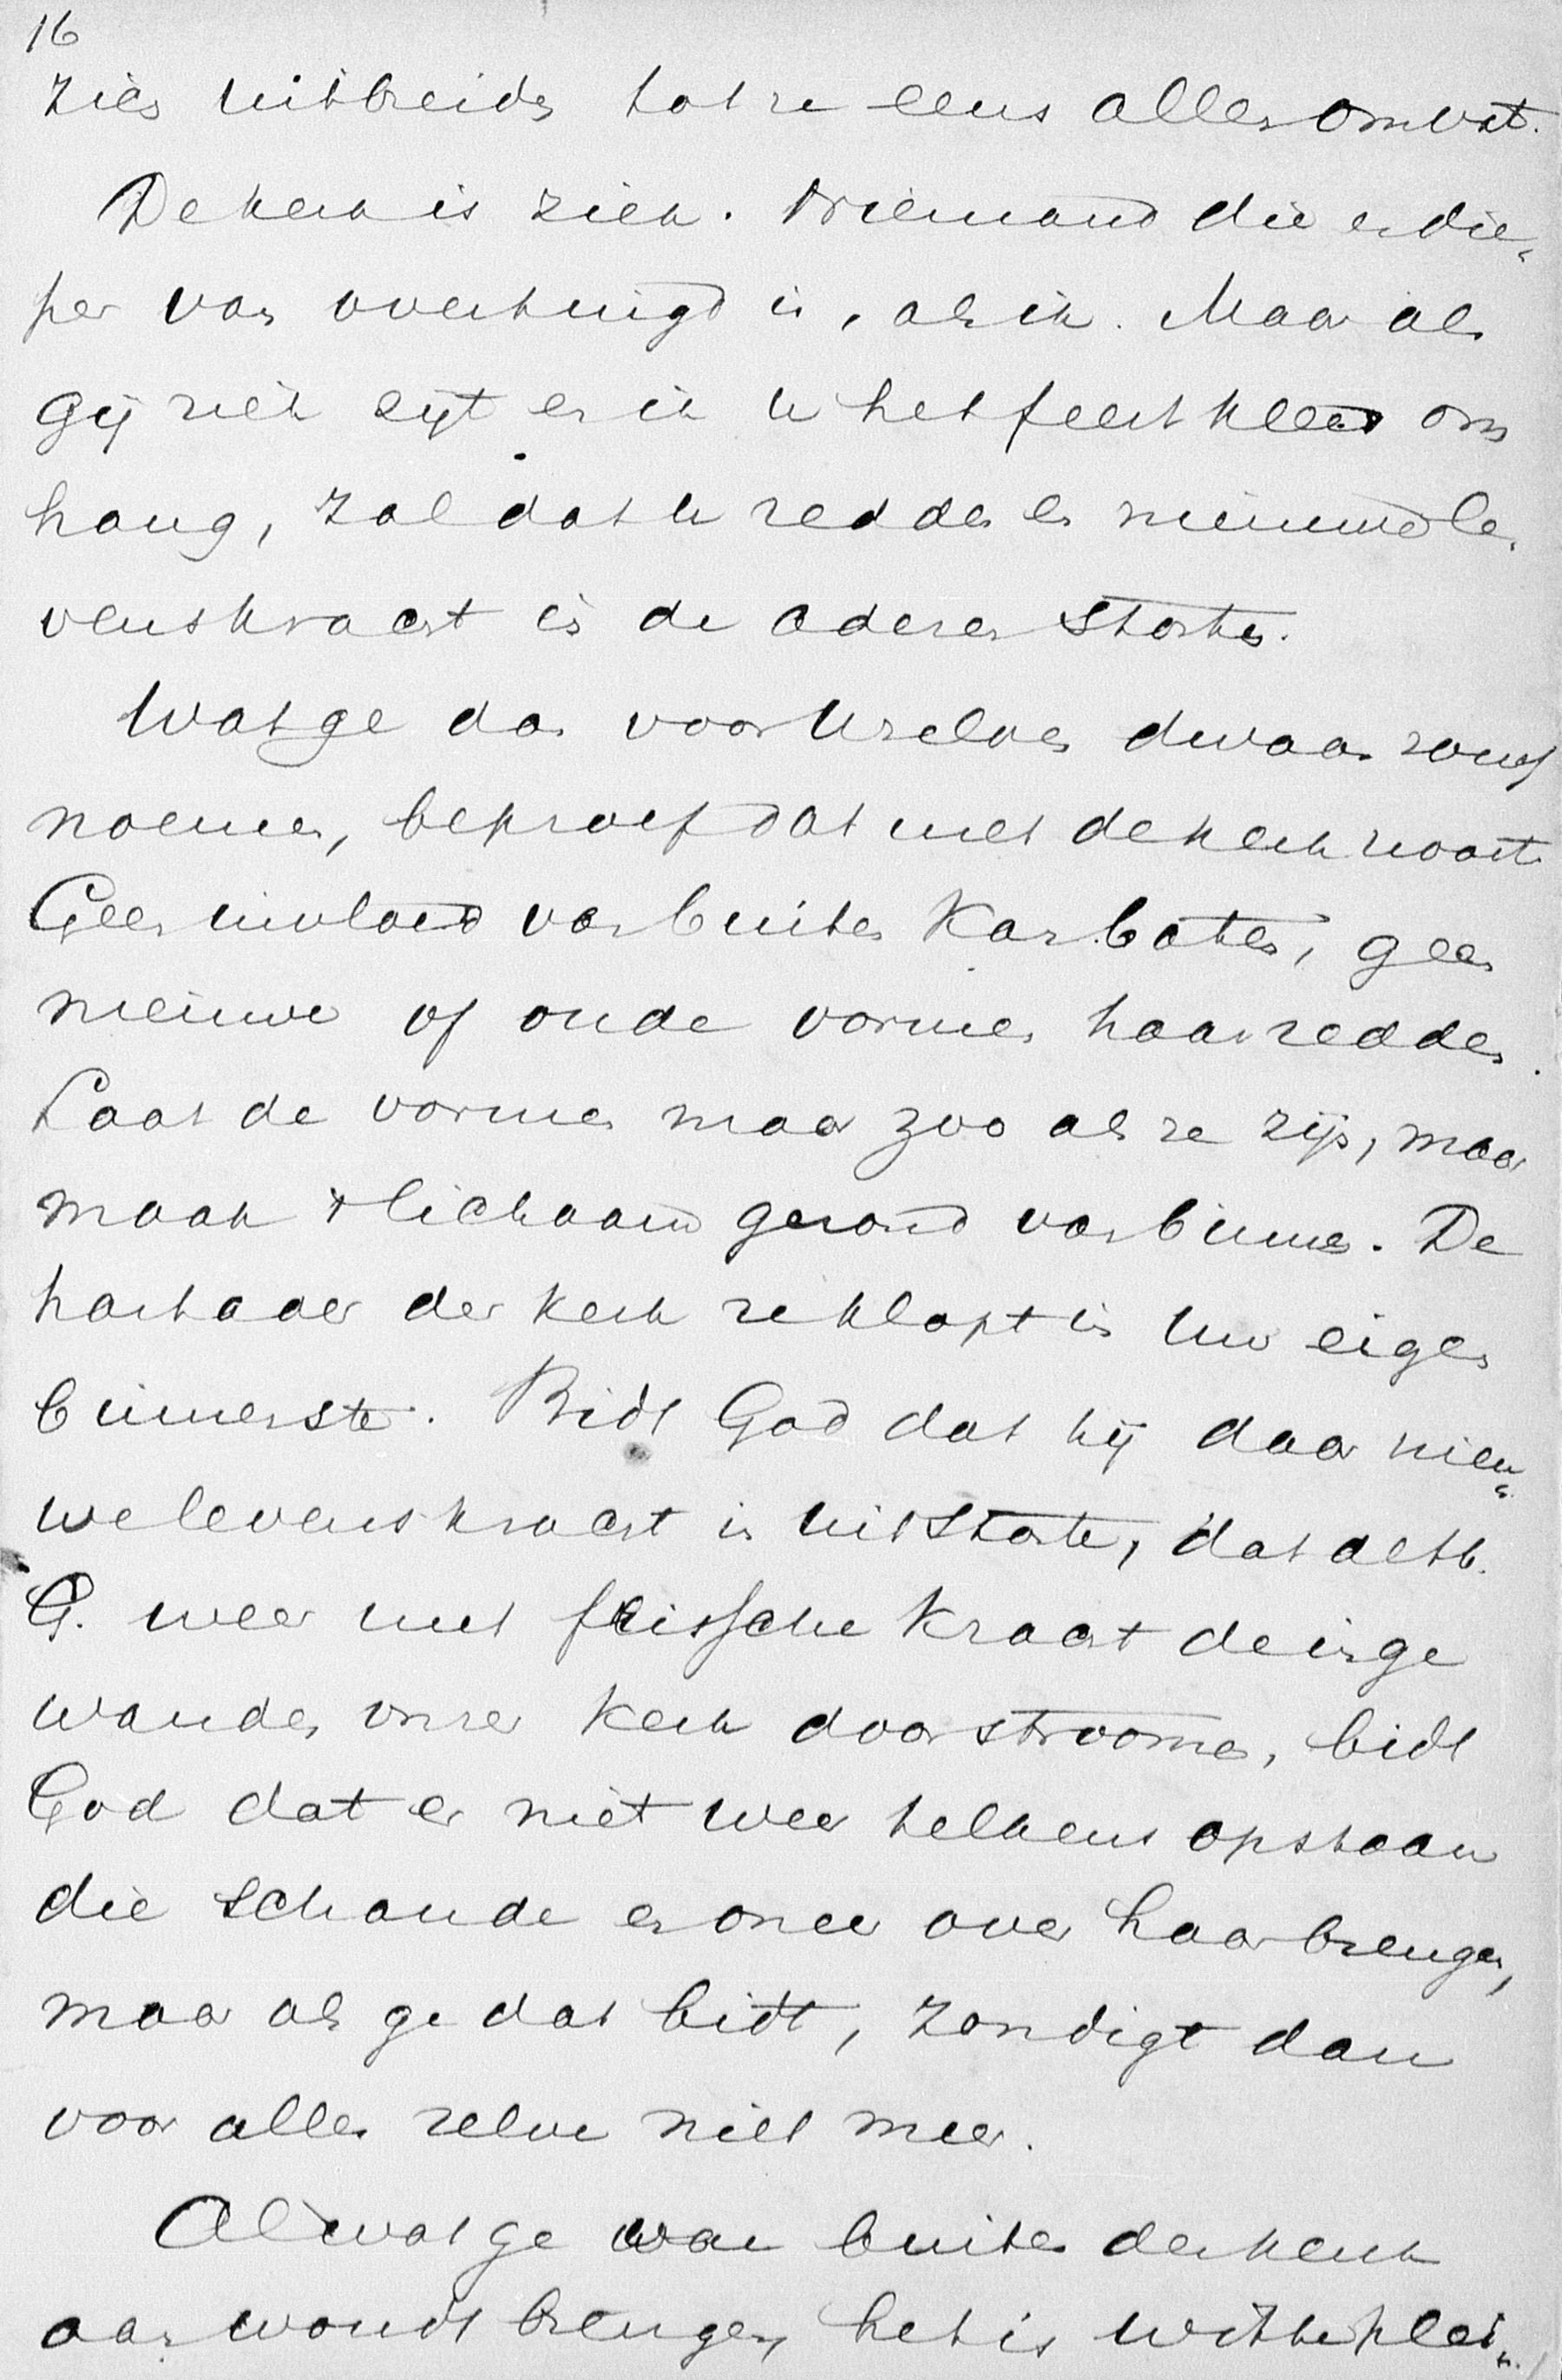 16
zien uitbreiden tot ze eens alles omvat.
De kerk is ziek. Niemand die er die-
per van overtuigd is, als ik. Maar als
gij ziek zijt en ik u het feestkleed om
hang, zal dat u redden en nieuwe le-
venskracht in de aderen storten.
Wat ge dan voor Uzelven dwaas zoudt
noemen, beproef dat met de kerk nooit.
Geen invloed van buiten kan baten, geen
nieuwe of oude vormen haar redden.
Laat de vormen maar zoo als ze zijn, maar
maak 't lichaam gezond van binnen. De
hartader der kerk ze klopt in Uw eigen
binnenste. Bidt God dat hij daar nieu-
we levenskracht in uitstorte, dat de H.
G. weer met frissche kracht de inge
wanden onzer kerk doorstroome, bidt
God dat er niet weer telkens opstaan
die schande en oneer over haar brengen,
maar als ge dat bidt, zondigt dan
voor alles zelve niet meer.
Al wat ge van buiten de kerk
aan woudt brengen, het is witte plei-